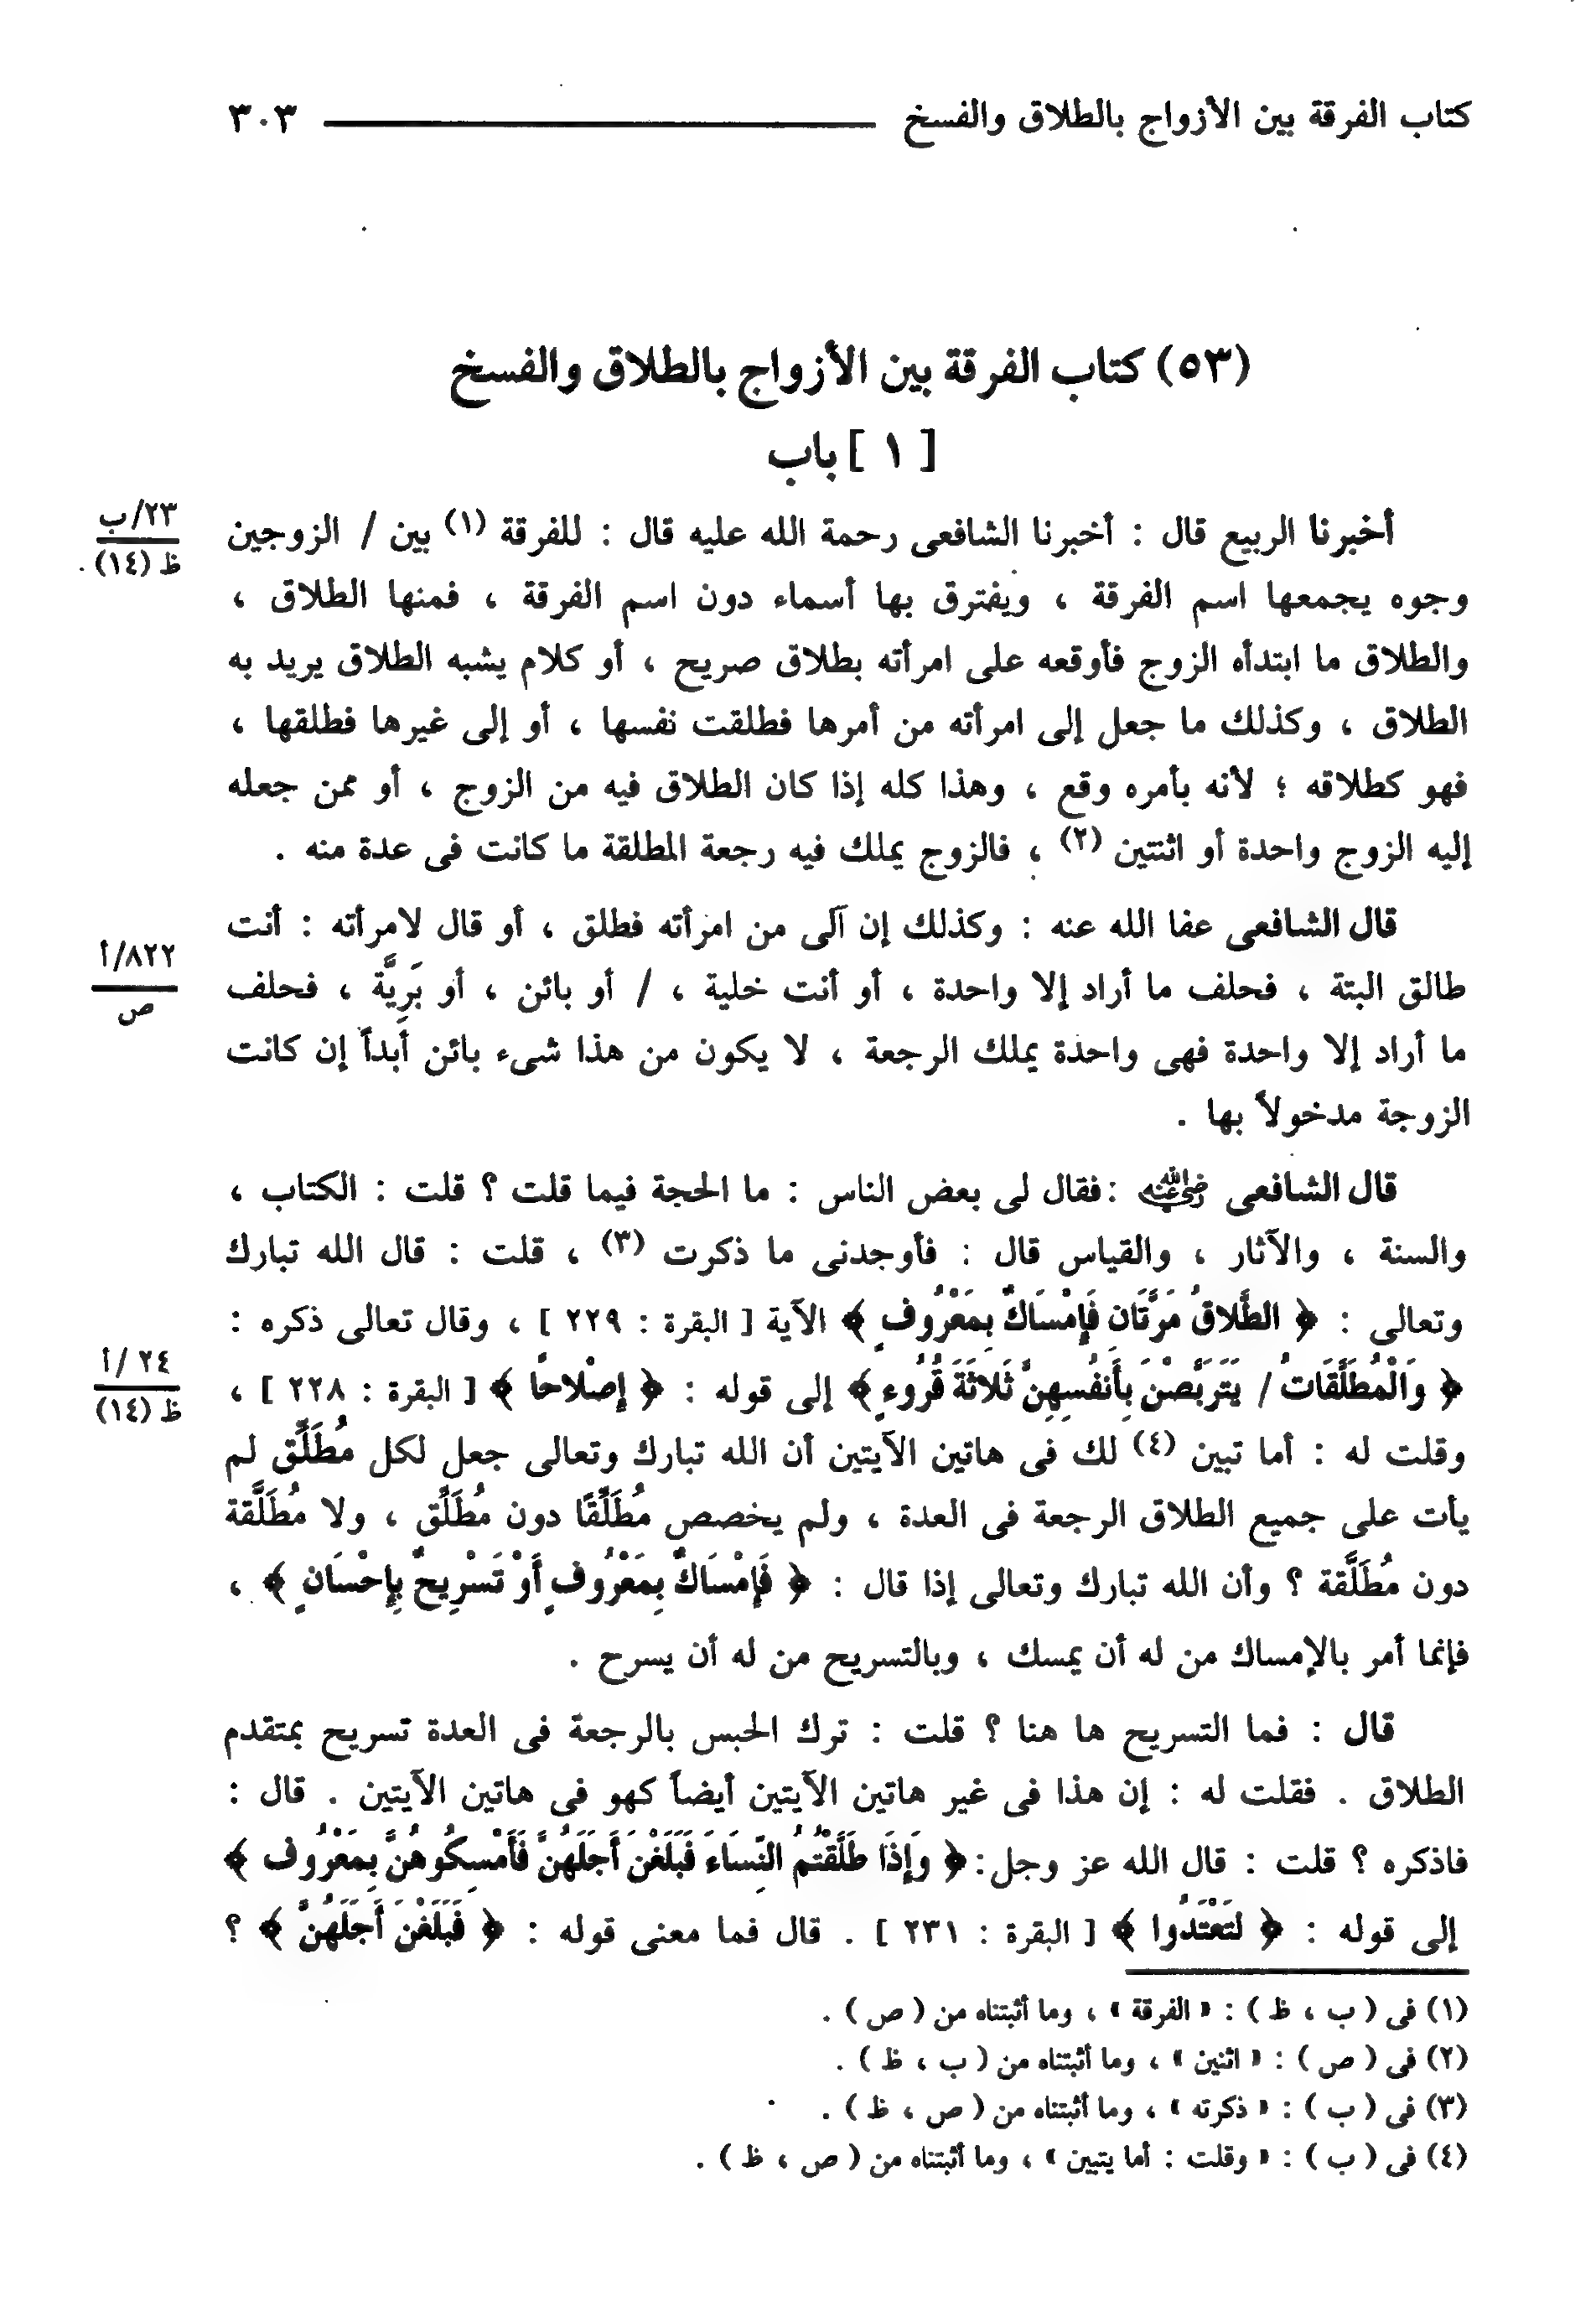 كتاب الفرقة بين الأزواج بالطلاق والفسخ ٣٠٣
(٥٣) كتاب الفرقة بين الأزواج بالطلاق والفسخ
[ ١ ] باب
أخبرنا الربيع قال : أخبرنا الشافعى رحمة الله عليه قال : للفرقة (١) بين / الزوجين
٢٣/ب
ظ (١٤)
وجوه يجمعها اسم الفرقة ، ويفترق بها أسماء دون اسم الفرقة ، فمنها الطلاق ،
والطلاق ما ابتدأه الزوج فأوقعه على امرأته بطلاق صريح ، أو كلام يشبه الطلاق يريد به
الطلاق ، وكذلك ما جعل إلى امرأته من أمرها فطلقت نفسها ، أو إلى غيرها فطلقها ،
فهو كطلاقه ؛ لأنه بأمره وقع ، وهذا كله إذا كان الطلاق فيه من الزوج ، أو ممن جعله
إليه الزوج واحدة أو اثنتين (٢) ، فالزوج يملك فيه رجعة المطلقة ما كانت فى عدة منه .
قال الشافعى عفا الله عنه : وكذلك إن آلى من امرأته فطلق ، أو قال لامرأته : أنت
٨٢٢/أ
ص
طالق البتة ، فحلف ما أراد إلا واحدة ، أو أنت خلية ، / أو بائن ، أو بَرِيَّة ، فحلف
ما أراد إلا واحدة فهى واحدة يملك الرجعة ، لا يكون من هذا شىء بائن أبداً إن كانت
الزوجة مدخولاً بها .
قال الشافعى رضي الله عنه : فقال لى بعض الناس : ما الحجة فيما قلت ؟ قلت : الكتاب ،
والسنة ، والآثار ، والقياس قال : فأوجدنى ما ذكرت (٣) ، قلت : قال الله تبارك
وتعالى : ﴿ الطَّلاقُ مَرَّتَانِ فَإِمْسَاكٌ بِمَعْرُوفٍ ﴾ الآية [ البقرة : ٢٢٩ ] ، وقال تعالى ذكره :
﴿ وَالْمُطَلَّقَاتُ / يَتَرَبَّصْنَ بِأَنفُسِهِنَّ ثَلاثَةَ قُرُوءٍ ﴾ إلى قوله : ﴿ إِصْلاحًا ﴾ [ البقرة : ٢٢٨ ] ،
٢٤ /أ
ظ (١٤)
وقلت له : أما تبين (٤) لك فى هاتين الآيتين أن الله تبارك وتعالى جعل لكل مُطَلِّق لم
يأت على جميع الطلاق الرجعة فى العدة ، ولم يخصص مُطَلِّقًا دون مُطَلِّق ، ولا مُطَلَّقة
دون مُطَلَّقة ؟ وأن الله تبارك وتعالى إذا قال : ﴿ فَإِمْسَاكٌ بِمَعْرُوفٍ أَوْ تَسْرِيحٌ بِإِحْسَانٍ ﴾ ،
فإنما أمر بالإمساك من له أن يمسك ، وبالتسريح من له أن يسرح .
قال : فما التسريح ها هنا ؟ قلت : ترك الحبس بالرجعة فى العدة تسريح بمتقدم
الطلاق . فقلت له : إن هذا فى غير هاتين الآيتين أيضاً كهو فى هاتين الآيتين . قال :
فاذكره ؟ قلت : قال الله عز وجل : ﴿ وَإِذَا طَلَّقْتُمُ النِّسَاءَ فَبَلَغْنَ أَجَلَهُنَّ فَأَمْسِكُوهُنَّ بِمَعْرُوفٍ ﴾
إلى قوله : ﴿ لِتَعْتَدُوا ﴾ [ البقرة : ٢٣١ ] . قال فما معنى قوله : ﴿ فَبَلَغْنَ أَجَلَهُنَّ ﴾ ؟
(١) فى ( ب ، ظ ) : « الفرقة » ، وما أثبتناه من ( ص ) .
(٢) فى ( ص ) : « اثنين » ، وما أثبتناه من ( ب ، ظ ) .
(٣) فى ( ب ) : « ذكرته » ، وما أثبتناه من ( ص ، ظ ) .
(٤) فى ( ب ) : « وقلت : أما يتبين » ، وما أثبتناه من ( ص ، ظ ) .